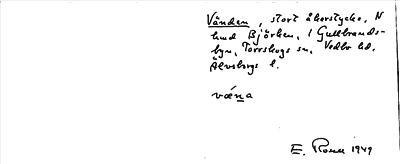 Vånden, stort åkerstycke, N
hmd Björken, i Gullbrands-
byn, Torrskogs sn, Vedbo hd,
Älvsborgs l.
våna
E. Rosell 1949